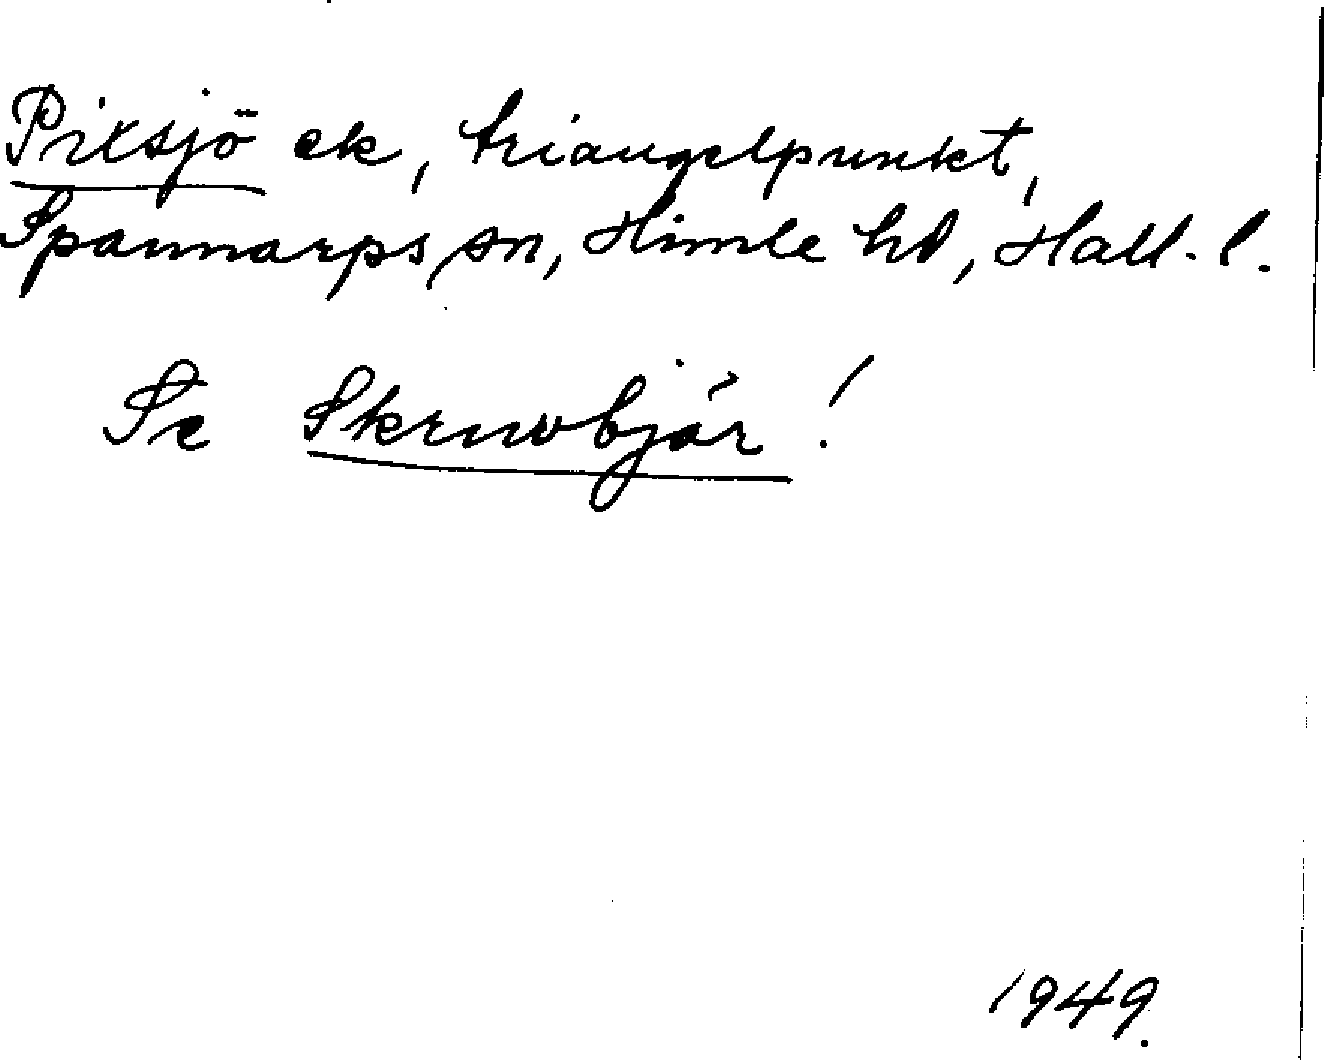 Piksjö ek, triangelpunkt,
Spannarps sn, Himle hd, Hall. l.
Se Skruvbjär!
1949.